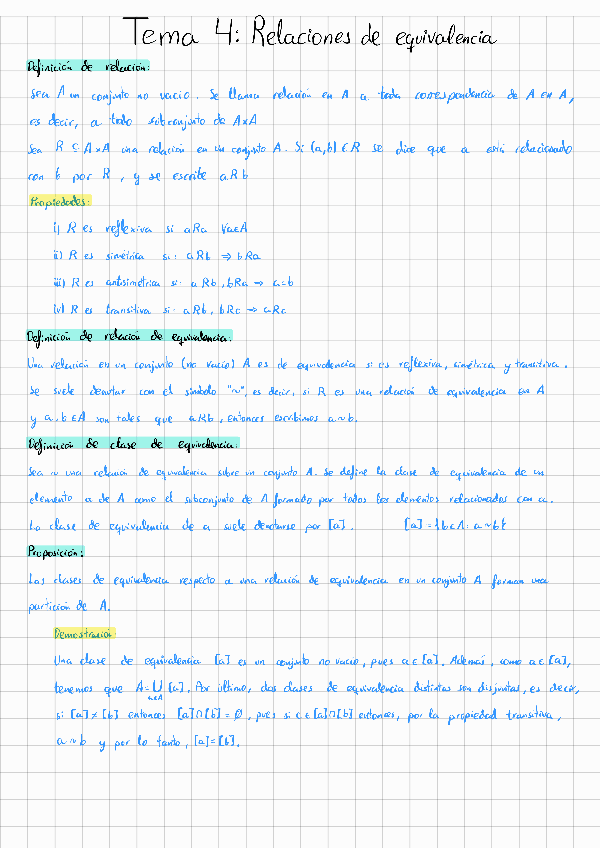 Tema 4: Relaciones de equivalencia
Definición de relación:
Sea A un conjunto no vacío. Se llama relación en A a toda correspondencia de A en A,
es decir, a todo subconjunto de A×A
Sea R ⊆ A×A una relación en un conjunto A. Si (a,b) ∈ R se dice que a está relacionado
con b por R, y se escribe aRb
Propiedades:
i) R es reflexiva si aRa ∀a∈A
ii) R es simétrica si: aRb ⇒ bRa
iii) R es antisimétrica si: aRb, bRa → a=b
iv) R es transitiva si: aRb, bRc → aRc
Definición de relación de equivalencia:
Una relación en un conjunto (no vacío) A es de equivalencia si es reflexiva, simétrica, y transitiva.
Se suele denotar con el símbolo "~", es decir, si R es una relación de equivalencia en A
y a,b∈A son tales que aRb, entonces escribimos a~b.
Definición de clase de equivalencia:
Sea ~ una relación de equivalencia sobre un conjunto A. Se define la clase de equivalencia de un
elemento a de A como el subconjunto de A formado por todos los elementos relacionados con a.
La clase de equivalencia de a suele denotarse por [a]. [a] = {b∈A: a~b}
Proposición:
Las clases de equivalencia respecto a una relación de equivalencia en un conjunto A forman una
partición de A.
Demostración:
Una clase de equivalencia [a] es un conjunto no vacío, pues a∈[a]. Además, como a∈[a],
tenemos que A=⋃ [a]. Por último, dos clases de equivalencia distintas son disjuntas, es decir,
a∈A
si [a]≠[b] entonces [a]∩[b]=∅, pues si c∈[a]∩[b] entonces, por la propiedad transitiva,
a~b y por lo tanto, [a]=[b].